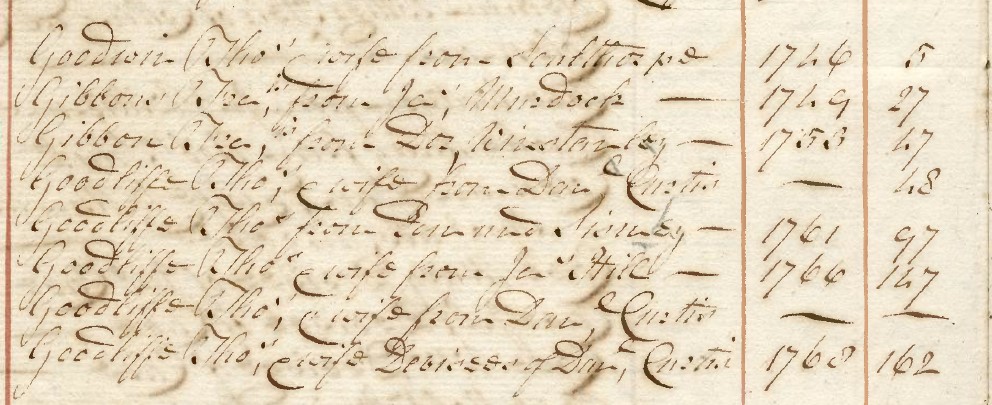 Goodwin Tho.s & wife from Sculthorpe 1746 5
Gibbons Jos., from Ja.s Murdock — 1749 27
Gibbon Jos., from Do, Winstanley — 1753 47
Goodliffe Tho.s & wife from Dan.l Curtis — 48
Goodliffe Tho.s from and — 1761 97
Goodliffe Tho.s & wife from Ja.s Hill — 1766 147
Goodliffe Tho.s & wife from Dan.l Curtis — —
Goodliffe Tho.s & wife Devisees of Dan.l Curtis 1768 162